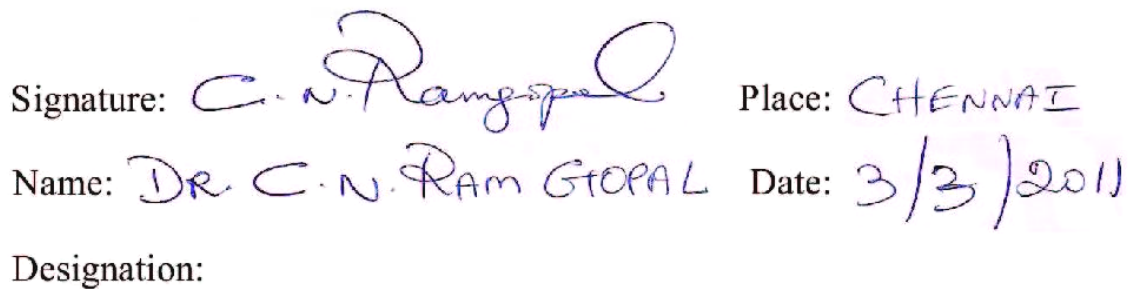 Signature: C. N. Ramgopal Place: CHENNAI
Name: DR. C. N. RAM GOPAL Date: 3/3/2011
Designation: